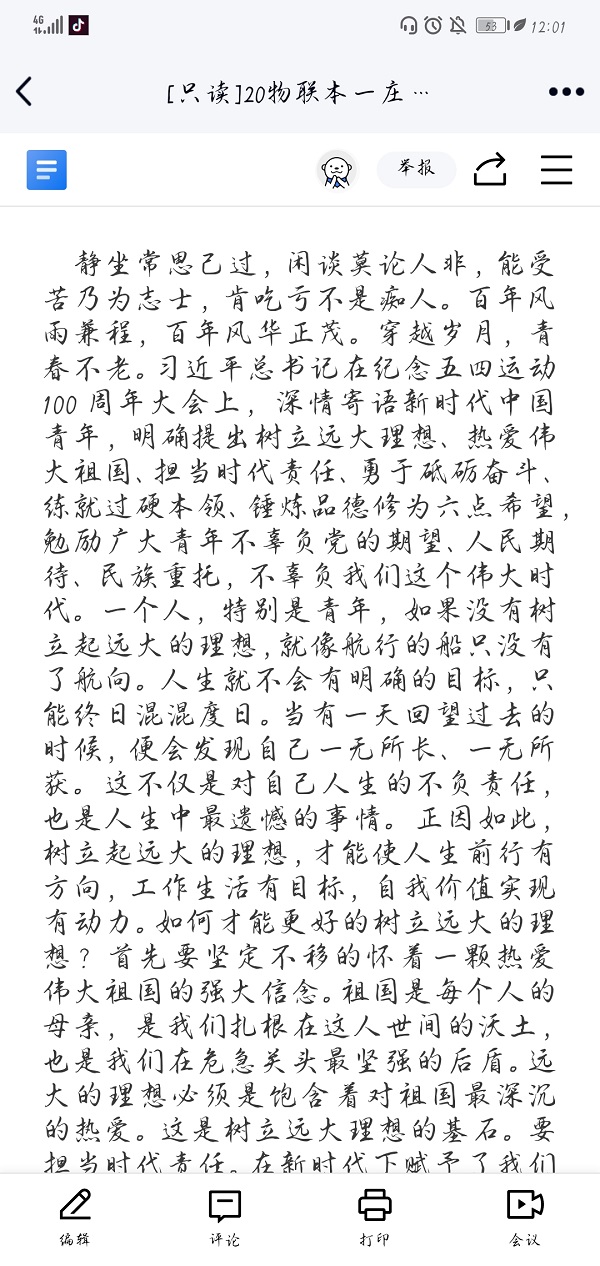 4G 53 12:01
[只读]20物联本一庄…
举报
静坐常思己过，闲谈莫论人非，能受
苦乃为志士，肯吃亏不是痴人。百年风
雨兼程，百年风华正茂。穿越岁月，青
春不老。习近平总书记在纪念五四运动
100 周年大会上，深情寄语新时代中国
青年，明确提出树立远大理想、热爱伟
大祖国、担当时代责任、勇于砥砺奋斗、
练就过硬本领、锤炼品德修为六点希望，
勉励广大青年不辜负党的期望、人民期
待、民族重托，不辜负我们这个伟大时
代。一个人，特别是青年，如果没有树
立起远大的理想，就像航行的船只没有
了航向。人生就不会有明确的目标，只
能终日混混度日。当有一天回望过去的
时候，便会发现自己一无所长、一无所
获。这不仅是对自己人生的不负责任，
也是人生中最遗憾的事情。正因如此，
树立起远大的理想，才能使人生前行有
方向，工作生活有目标，自我价值实现
有动力。如何才能更好的树立远大的理
想？首先要坚定不移的怀着一颗热爱
伟大祖国的强大信念。祖国是每个人的
母亲，是我们扎根在这人世间的沃土，
也是我们在危急关头最坚强的后盾。远
大的理想必须是饱含着对祖国最深沉
的热爱。这是树立远大理想的基石。要
担当时代责任。在新时代下赋予了我们
编辑 评论 打印 会议